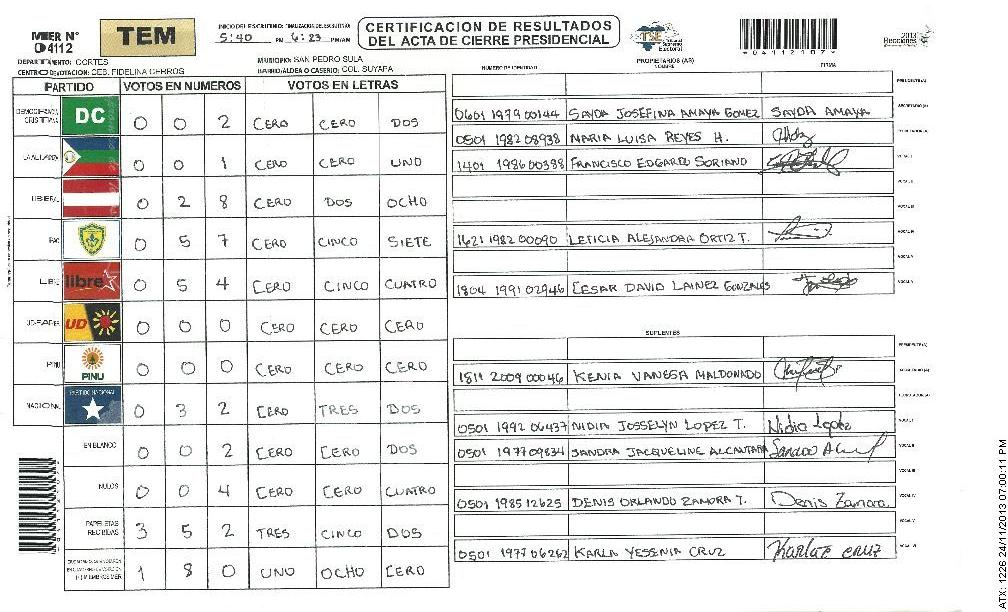 MER N° 04112
TEM
INICIO DEL ESCRUTINIO: 5:40 PM
FINALIZACION DEL ESCRUTINIO: 6:23 PM/AM
CERTIFICACION DE RESULTADOS
DEL ACTA DE CIERRE PRESIDENCIAL
TSE
Tribunal Supremo Electoral
04112107
2013
Elecciones
DEPARTAMENTO: CORTES
MUNICIPIO: SAN PEDRO SULA
CENTRO DE VOTACION: CEB. FIDELINA CERROS
BARRIO/ALDEA O CASERIO: COL. SUYAPA
PARTIDO VOTOS EN NUMEROS VOTOS EN LETRAS
DEMOCRACIA CRISTIANA DC 0 0 2 CERO CERO DOS
LA ALIANZA 0 0 1 CERO CERO UNO
LIBERAL 0 2 8 CERO DOS OCHO
PAC 0 5 7 CERO CINCO SIETE
LIBRE libre 0 5 4 CERO CINCO CUATRO
UD-FAPER UD 0 0 0 CERO CERO CERO
PINU PINU 0 0 0 CERO CERO CERO
NACIONAL PARTIDO NACIONAL 0 3 2 CERO TRES DOS
EN BLANCO 0 0 2 CERO CERO DOS
NULOS 0 0 4 CERO CERO CUATRO
PAPELETAS RECIBIDAS 3 5 2 TRES CINCO DOS
1 8 0 UNO OCHO CERO
NUMERO DE IDENTIDAD PROPIETARIOS (AS) NOMBRE FIRMA
PRESIDENTE(A)
0601 1979 00144 SAYDA JOSEFINA AMAYA GOMEZ SAYDA AMAYA SECRETARIO(A)
0501 1982 08938 MARIA LUISA REYES H. ESCRUTADOR(A)
1401 1986 00388 FRANCISCO EDGARDO SORIANO VOCAL I
VOCAL II
VOCAL III
1621 1982 00090 LETICIA ALEJANDRA ORTIZ T. VOCAL IV
VOCAL V
1804 1991 02946 CESAR DAVID LAINEZ GONZALES
SUPLENTES
PRESIDENTE(A)
1811 2009 00046 KENIA VANESA MALDONADO SECRETARIO(A)
ESCRUTADOR(A)
0501 1992 06437 NIDIA JOSSELYN LOPEZ T. Nidia Lopez VOCAL I
0501 1977 09834 SANDRA JACQUELINE ALCANTARA VOCAL II
VOCAL III
0501 1985 12625 DENIS ORLANDO ZAMORA T. Denis Zamora VOCAL IV
VOCAL V
0501 1977 06262 KARLA YESSENIA CRUZ Karla cruz VOCAL VI
ATX: 1226 24/11/2013 07:00:11 PM